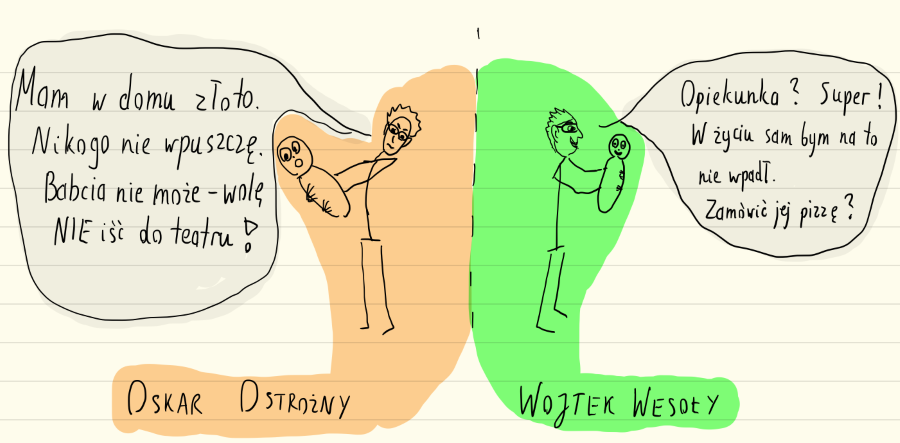 Mam w domu złoto.
Nikogo nie wpuszczę.
Babcia nie może - wolę
NIE iść do teatru!
Opiekunka? Super!
W życiu sam bym na to
nie wpadł.
Zamówić jej pizzę?
OSKAR OSTROŻNY
WOJTEK WESOŁY